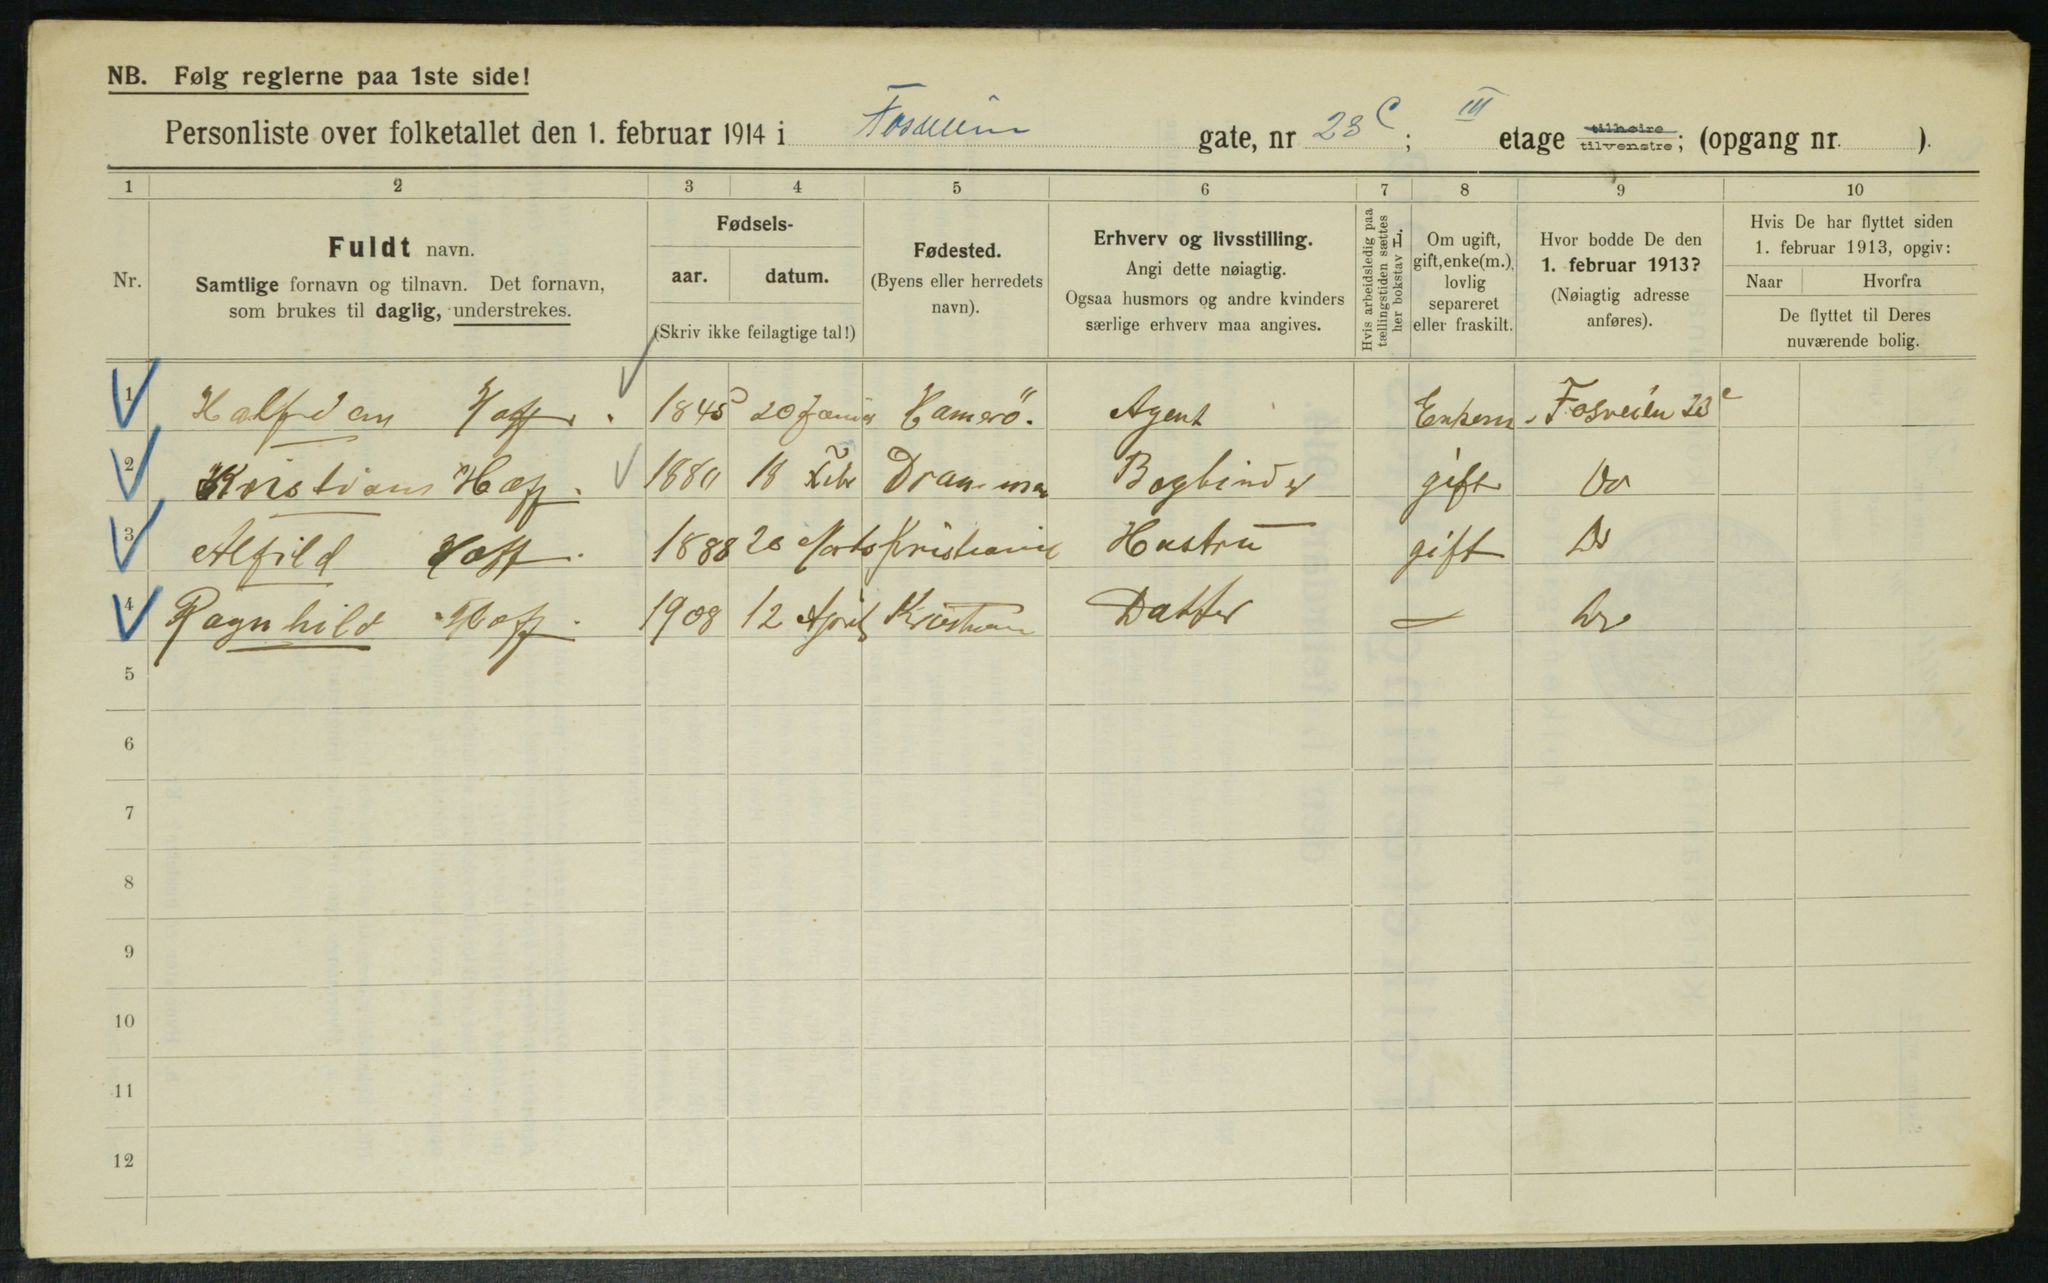 NB. Følg reglerne paa 1ste side!
Personliste over folketallet den 1. februar 1914 i Fosveien gate, nr 23 C; III etage tilhøire tilvenstre; (opgang nr. ).
1 2 3 4 5 6 7 8 9 10
Nr.
Fuldt navn.
Samtlige fornavn og tilnavn. Det fornavn,
som brukes til daglig, understrekes.
Fødsels-
aar. datum.
(Skriv ikke feilagtige tal!)
Fødested.
(Byens eller herredets
navn).
Erhverv og livsstilling.
Angi dette nøiagtig.
Ogsaa husmors og andre kvinders
særlige erhverv maa angives.
Hvis arbeidsledig paa
tællingstiden sættes
her bokstav L.
Om ugift,
gift, enke(m.),
lovlig
separeret
eller fraskilt.
Hvor bodde De den
1. februar 1913?
(Nøiagtig adresse
anføres).
Hvis De har flyttet siden
1. februar 1913, opgiv:
Naar Hvorfra
De flyttet til Deres
nuværende bolig.
1 Halfdan Hoff. 1845 20 Hamerö. Agent Enkem. Fosveien 23 c
2 Kristian Hoff. 1880 18 Febr Drammen Bogbinder gift Do
3 Alfild Hoff. 1888 Marts Kristiania Hustru gift Do
4 Ragnhild Hoff. 1908 12 April Kristiania Datter — Do
5
6
7
8
9
10
11
12